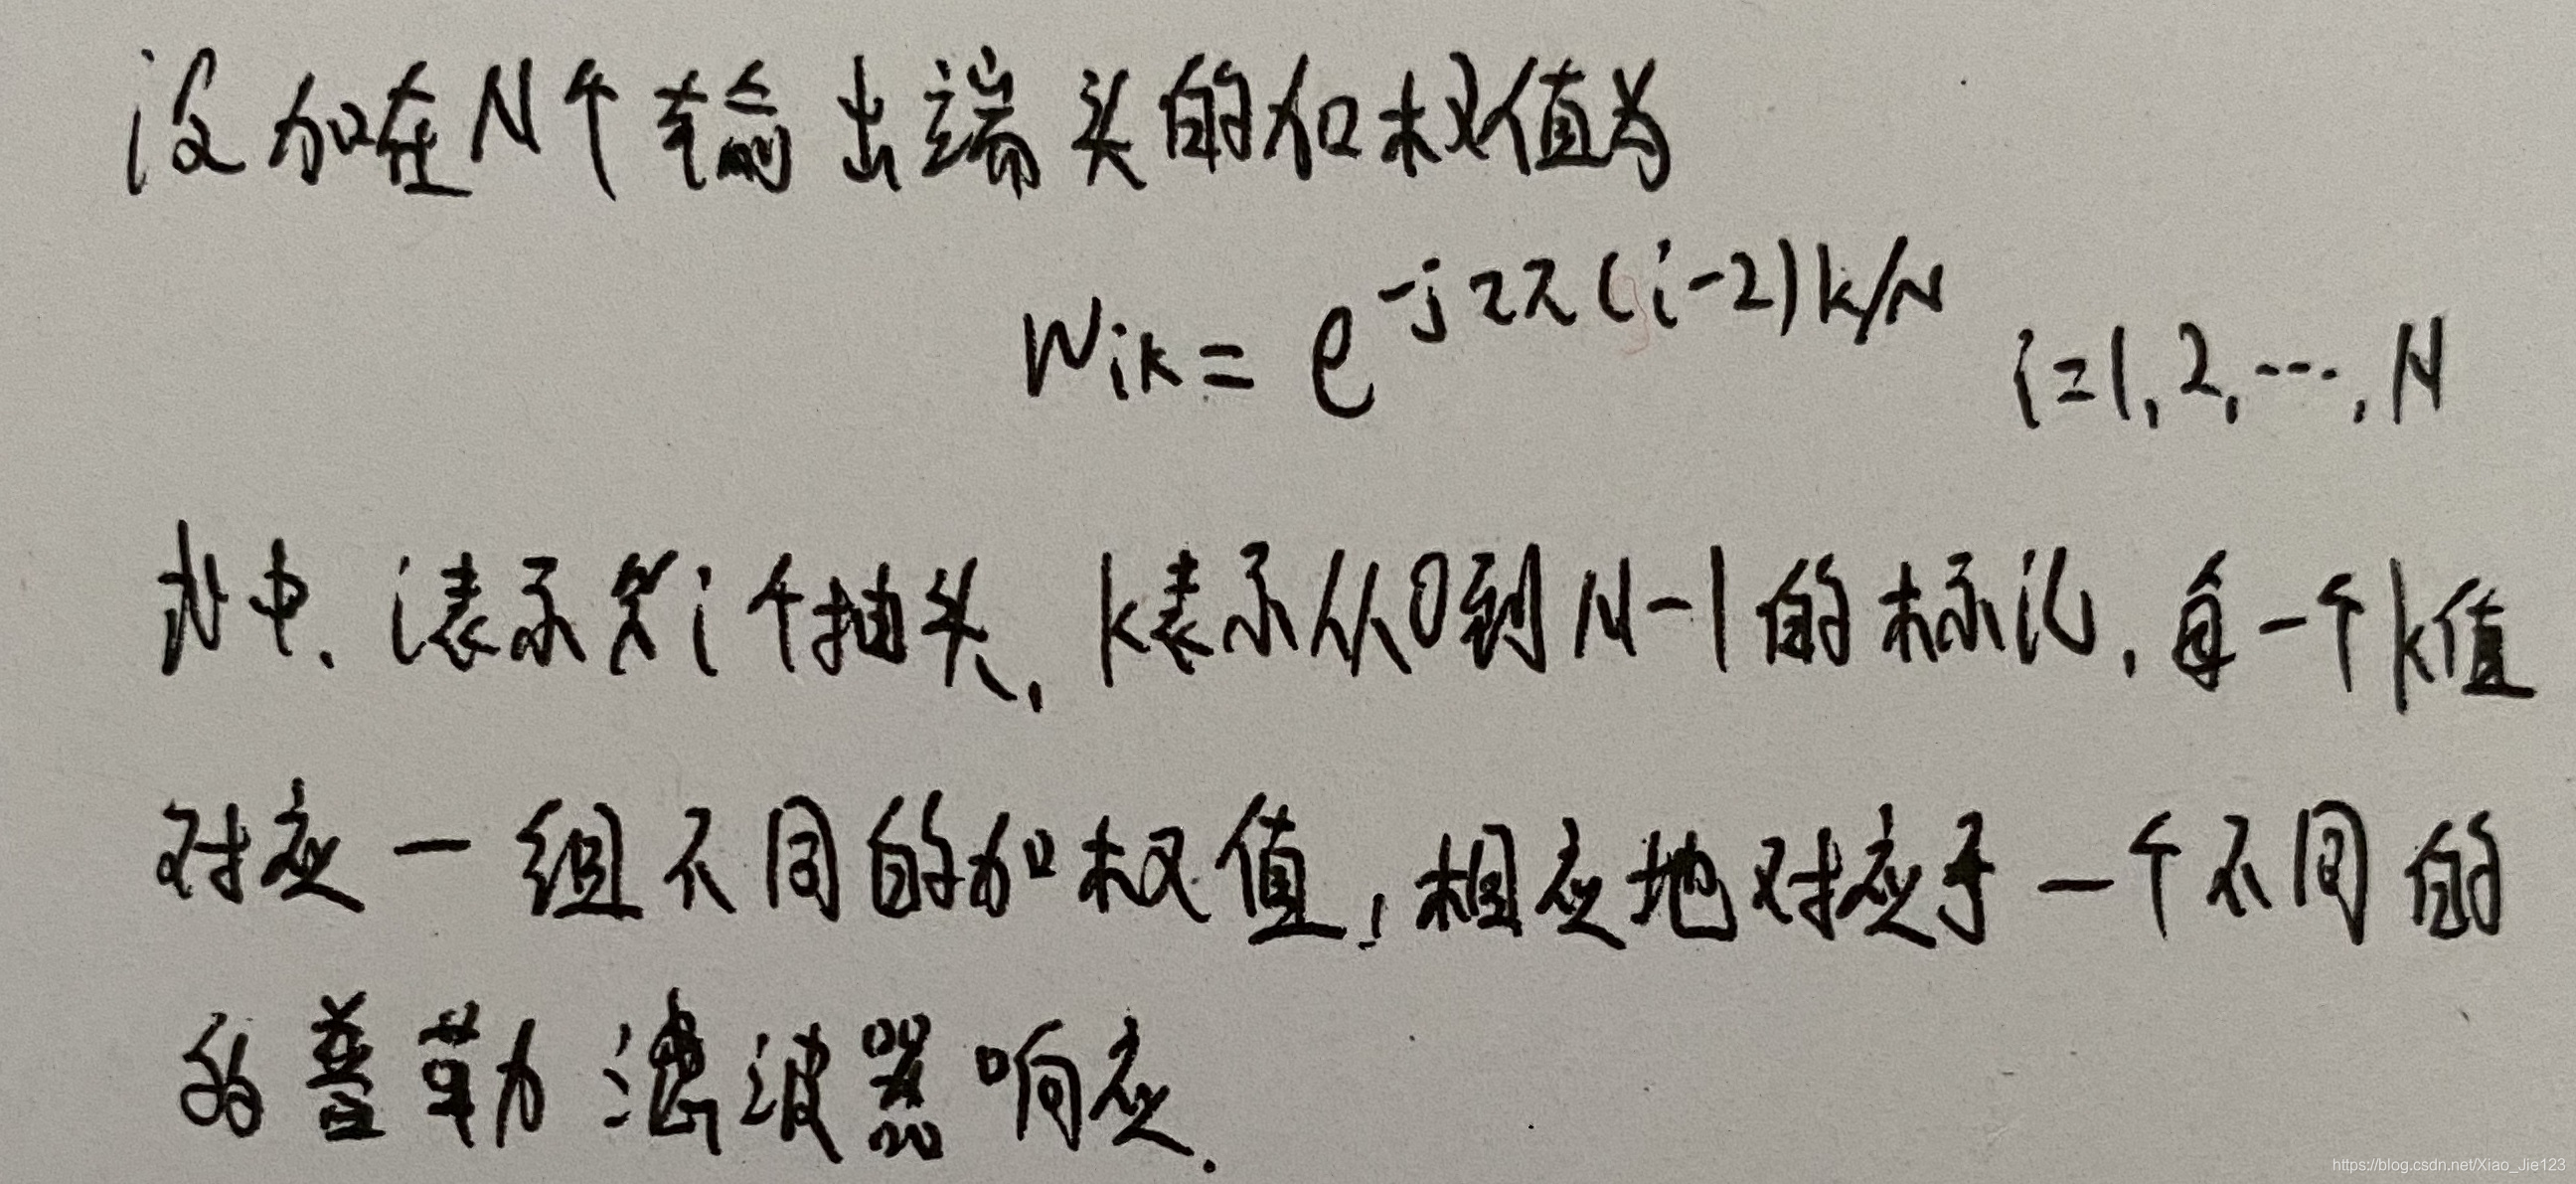 设加在N个输出端头的加权值为
Wik = e^{-j2π(i-2)k/N} i=1,2,…,N
其中、i表示第i个抽头,k表示从0到N-1的标记,每一个k值
对应一组不同的加权值,相应地对应于一个不同的
的普勒滤波器响应.
https://blog.csdn.net/Xiao_Jie123